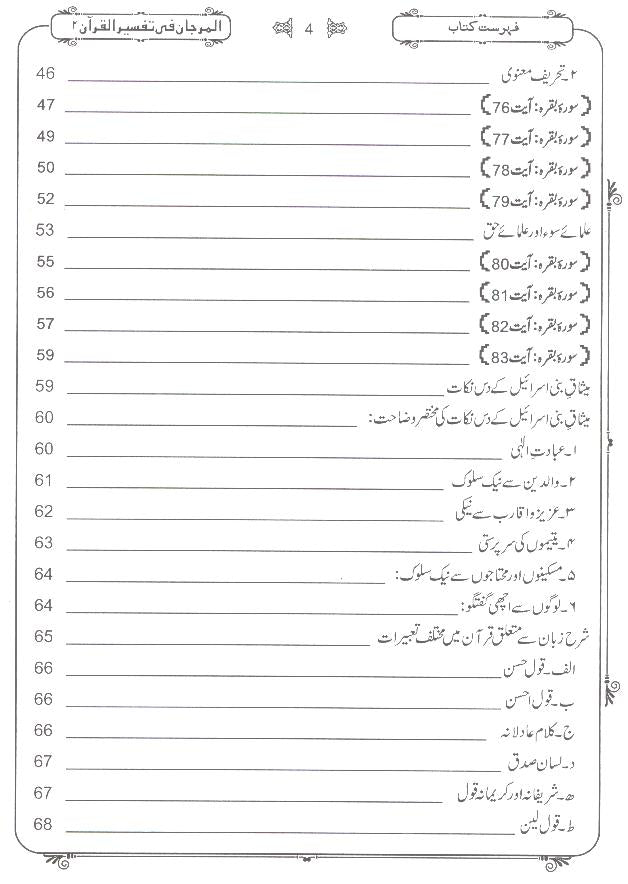 فہرست کتاب 4 المرجان فی تفسیر القرآن ۲
۲۔ تحریف معنوی 46
{سورۂ بقرہ: آیت 76} 47
{سورۂ بقرہ: آیت 77} 49
{سورۂ بقرہ: آیت 78} 50
{سورۂ بقرہ: آیت 79} 52
علمائے سوء اور علمائے حق 53
{سورۂ بقرہ: آیت 80} 55
{سورۂ بقرہ: آیت 81} 56
{سورۂ بقرہ: آیت 82} 57
{سورۂ بقرہ: آیت 83} 59
میثاقِ بنی اسرائیل کے دس نکات 59
میثاقِ بنی اسرائیل کے دس نکات کی مختصر وضاحت: 60
۱۔ عبادتِ الٰہی 60
۲۔ والدین سے نیک سلوک 61
۳۔ عزیز و اقارب سے نیکی 62
۴۔ یتیموں کی سرپرستی 63
۵۔ مسکینوں اور محتاجوں سے نیک سلوک: 64
۶۔ لوگوں سے اچھی گفتگو: 64
شرح زبان سے متعلق قرآن میں مختلف تعبیرات 65
الف۔ قول حسن 66
ب۔ قول احسن 66
ج۔ کلام عادلانہ 66
د۔ لسان صدق 67
ھ۔ شریفانہ اور کریمانہ قول 67
ط۔ قول لین 68